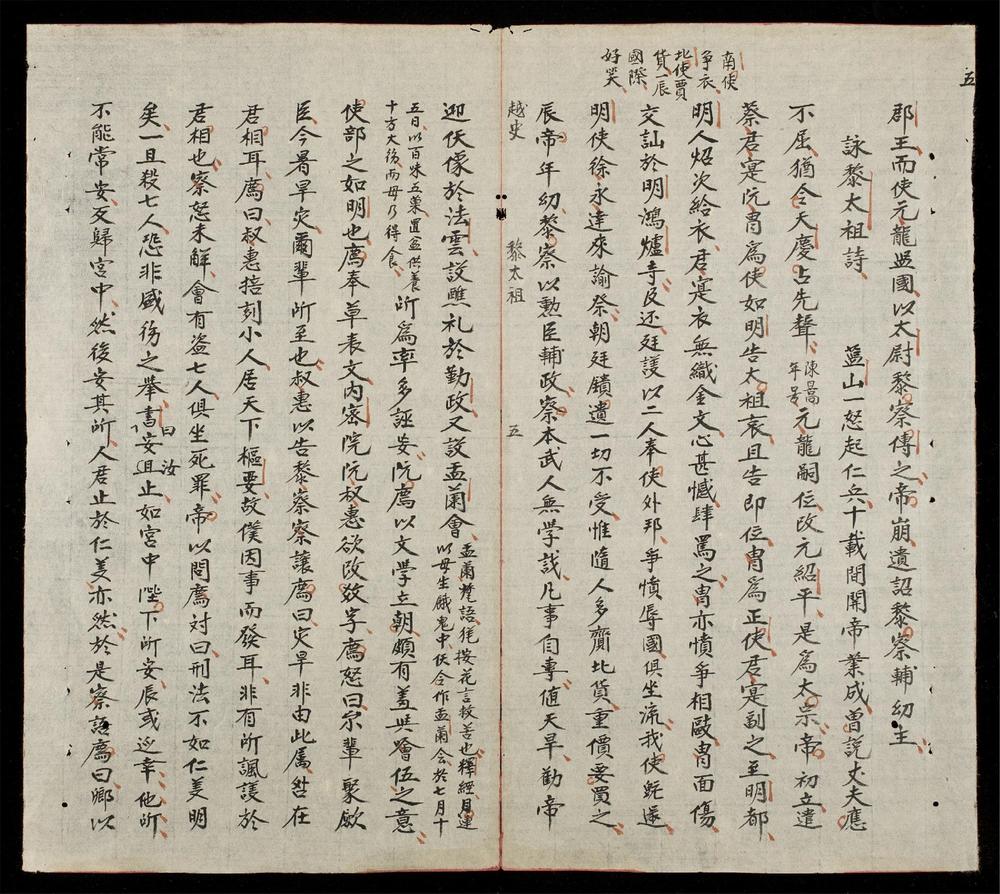 五
南使
争衣
北使賈
貨一辰
國際
好笑
郡王而使元龍㞐國以大尉黎察傅之帝崩遺詔黎察輔幼主
詠黎太祖詩 藍山一怒起仁兵十載間關帝業成曾説丈夫應
不屈猶令天慶占先聲 陳暠年号 元龍嗣位改元紹平是爲太宗帝初立遣
蔡君寔阮胄爲使如明告太祖哀且告即位胄爲正使君寔副之至明都
明人炤次給衣君寔衣無織金文心甚憾肆罵之胄亦憤争相毆胄面傷
交訕於明鴻爐寺及还廷議以二人奉使外邦爭憤辱國俱坐流我使旣還
明使徐永達來諭祭朝廷饋遺一切不受惟隨人多齎北貨重價要買之
辰帝年幼黎察以勲臣輔政察本武人無学識凡事自專値天旱勸帝
越史 黎太祖 五
迎伏像於法雲設醮礼於勤政又設盂蘭會 盂蘭梵語 按花言救苦也釋經目連
以母生餓鬼中伏令作盂蘭会於七月十
五日以百味五菓置盆供養
十方大德而母乃得食 所爲率多誣妄阮廌以文學立朝頗有羞與噲伍之意
使部之如明也廌奉草表文内密院阮叔惠欲改数字廌怒曰尔輩聚歛
臣今暑旱灾爾輩所至也叔惠以告黎察察讓廌曰灾旱非由此属咎在
君相耳廌曰叔惠掊刻小人居天下樞要故僕因事而發耳非有所諷議於
君相也察怒未觧會有盗七人俱坐死罪帝以問廌対曰刑法不如仁美明
矣一旦殺七人恐非盛德之舉書曰安汝止如宮中陛下所安辰或廵幸他所
不能常安反歸宮中然後安其所人君止於仁美亦然於是察語廌曰卿以